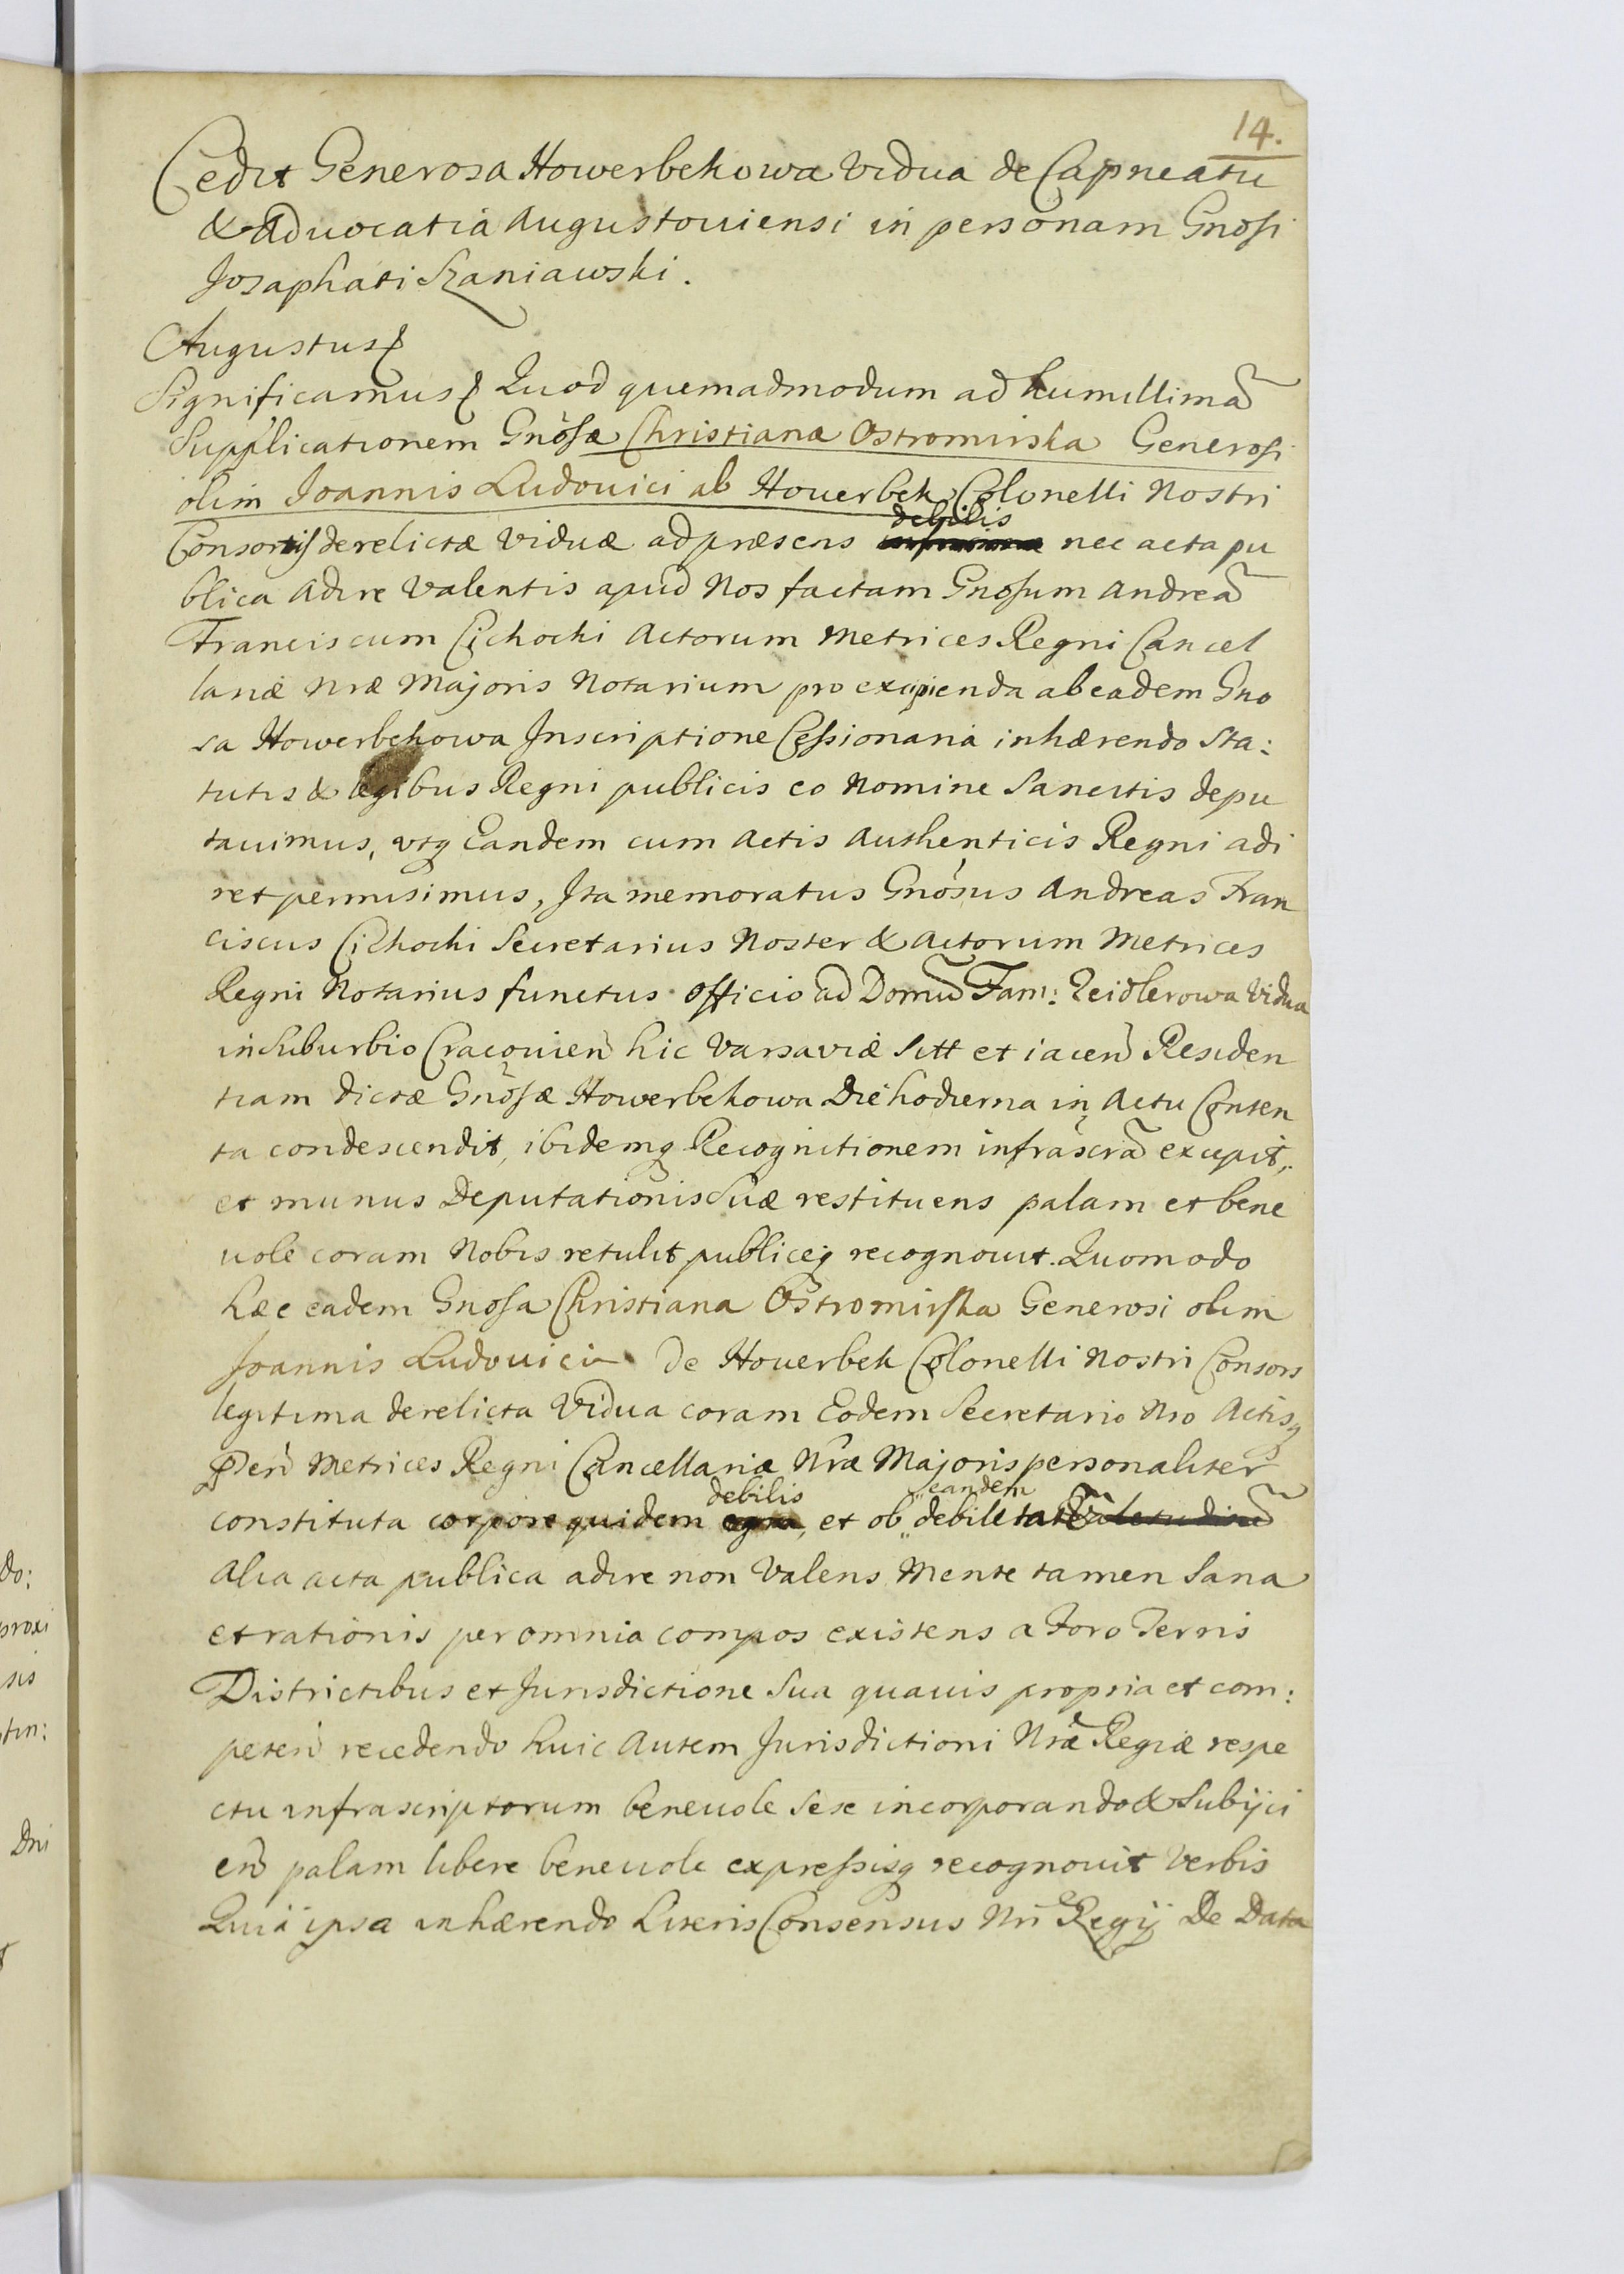 14.
Cedit Generosa Howerbekowa Vidua de Capneatu
& Aduocatia Augustouiensi in personam Gnosi
Josaphati Szaniawski.
Augustus
Significamus Quod quemadmodum ad humillimã
Supplicationem Gnosæ Christianæ Ostromirska Generosi
olim Joannis Ludouici ab Houerbek Colonelli Nostri
debilis
Consortis derelictæ Viduæ ad præsens nec acta pu
blica adire Valentis apud Nos factam Gnosum Andreã
Franciscum Cichocki Actorum Metrices Regni Cancel
lariæ Nræ Majoris Notarium pro excipienda ab eadem Gno
sa Howerbekowa Inscriptione Cessionaria inhærendo Sta:
tutis & legibus Regni publicis eo Nomine Sancitis depu
tauimus, vtq Eandem cum Actis Authenticis Regni adi
ret permisimus, Ita memoratus Gnosus Andreas Fran
ciscus Cichocki Secretarius Noster & Actorum Metrices
Regni Notarius functus officio ad Domũ Fam: Zeidlerowa Vidua
in Suburbio Cracouien hic Varsaviæ Sitt et iacen Residen
tiam dictæ Gnosæ Howerbekowa Die hodierna in Actu Conten
ta condescendit, ibidemq Recognitionem infrascrã excepit,
et munus Deputationis Suæ restituens palam et bene
uole coram Nobis retulit publiceq recognouit. Quomodo
hæc eadem Gnosa Christiana Ostromirska Generosi olim
Joannis Ludouici de Houerbek Colonelli Nostri Consors
legitima derelicta Vidua coram Eodem Secretario Nro Actisq
Pñ Metrices Regni Cancellariæ Nræ Majoris personaliter
debilis eandem
constituta corpore quidem ægra, et ob debilitatẽ Valetudinẽ
alia acta publica adire non Valens Mente tamen Sana
et rationis per omnia compos existens a Foro Terris
Districtibus et Jurisdictione Sua quauis propria et com:
peten recedendo huic Autem Jurisdictioni Nræ Regiæ respe
ctu infrascriptorum beneuole sese incorporando & Subijci
en palam libere beneuole expressisq recognouit Verbis
Quia ipsa inhærendo Literis Consensus Nri Regij De Data
do:
proxi
sis
tin:
Dni